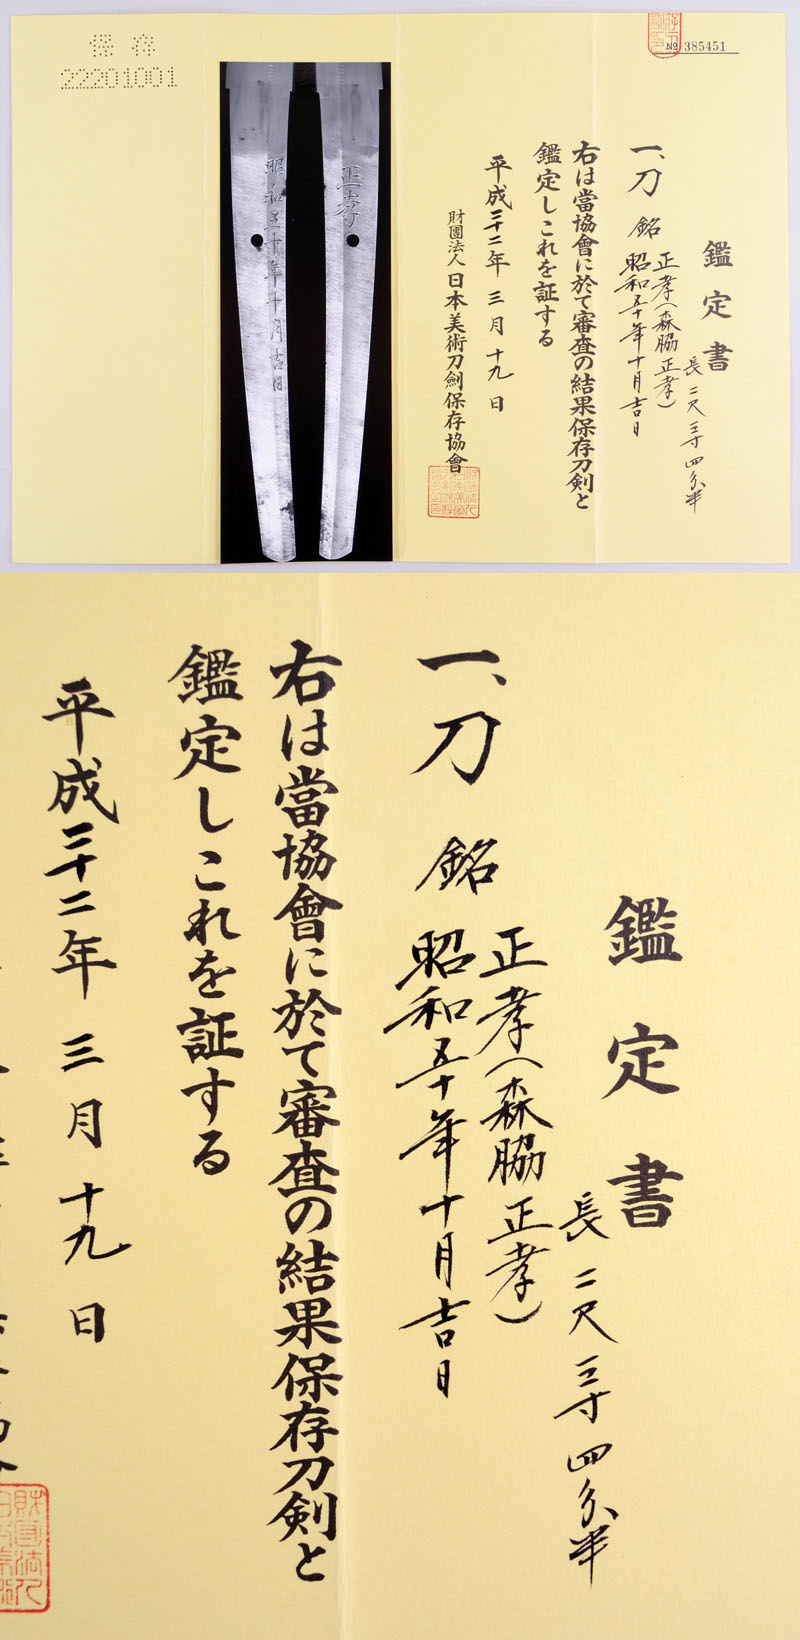 保存
22201001
№ 385451
鑑定書
長二尺三寸四分半
一、刀 銘 正孝(森脇正孝)
昭和五十年十月吉日
右は當協會に於て審査の結果保存刀剣と
鑑定しこれを証する
平成二十二年 三月 十九日
財團法人日本美術刀劍保存協會
正孝
昭和五十年十月吉日
鑑定書
長二尺三寸四分半
一、刀 銘 正孝(森脇正孝)
昭和五十年十月吉日
右は當協會に於て審査の結果保存刀剣と
鑑定しこれを証する
平成二十二年 三月 十九日